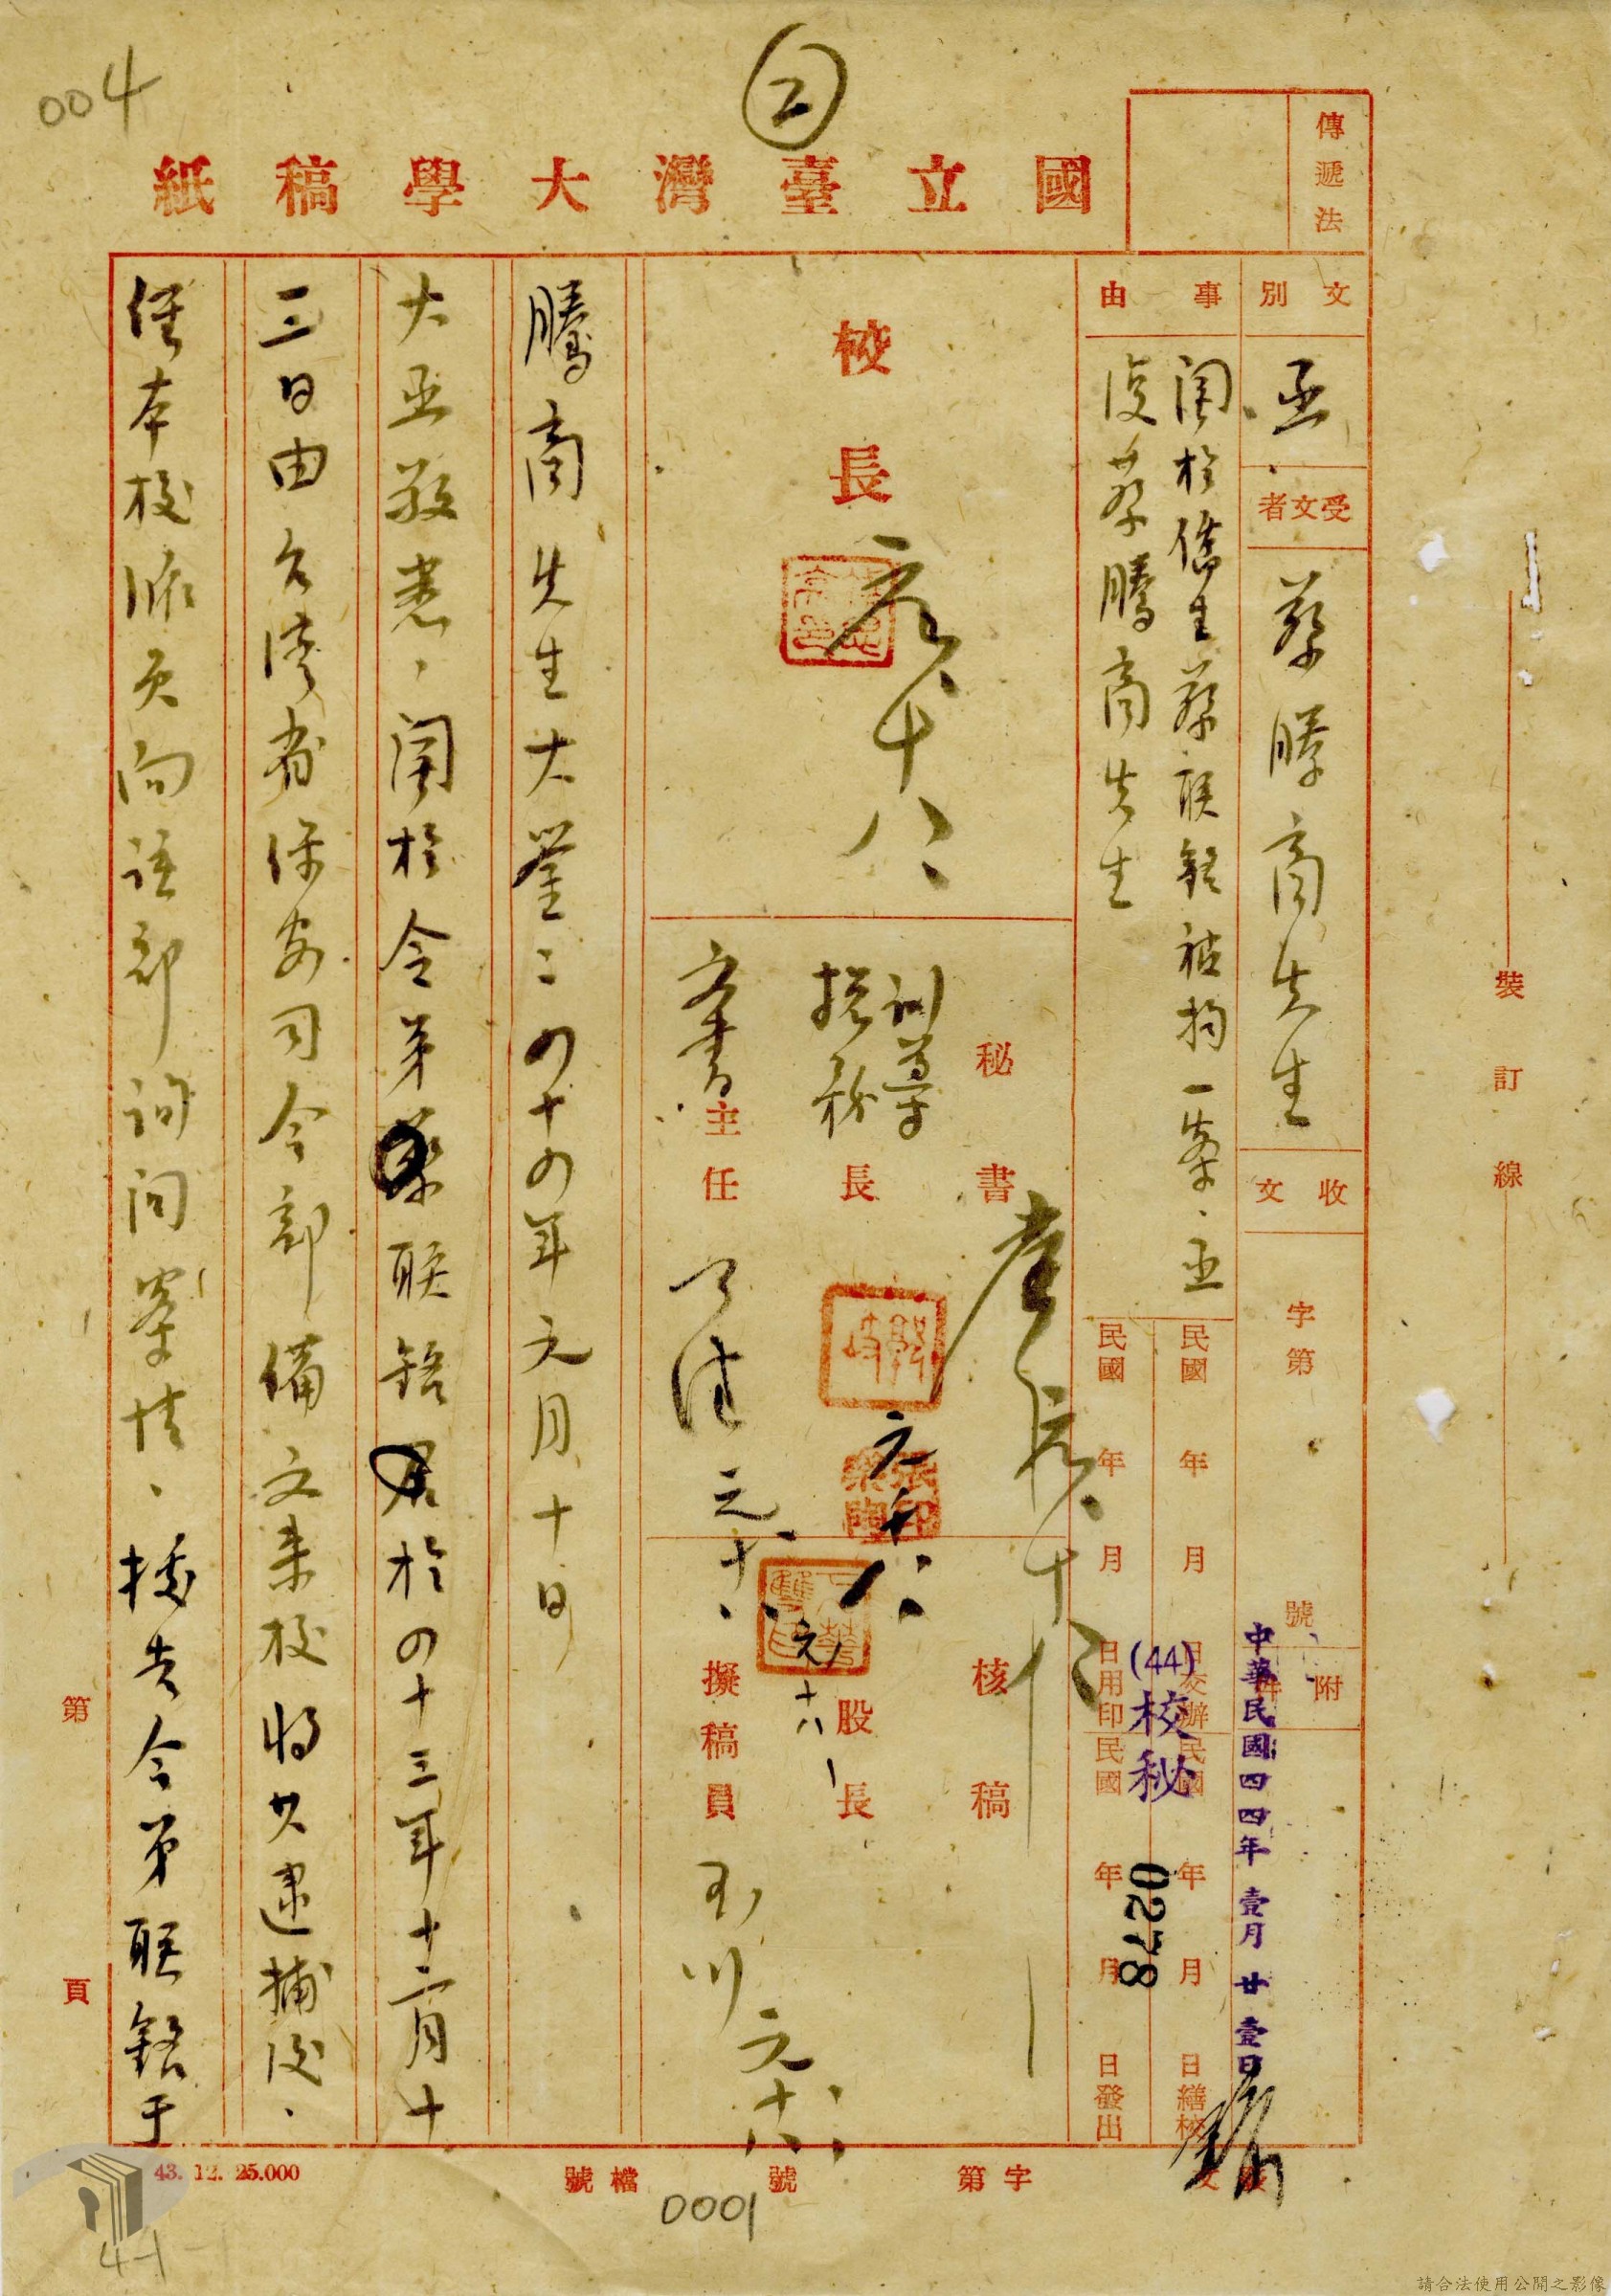 004
②
國立臺灣大學稿紙
傳遞法
文別
函
受文者
蔡騰商先生
收文
字第
號
附件
事由
關於僑生蔡联鋊被拘一案、函
復蔡騰商先生
民國 年 月 日交辦
民國 年 月 日繕校
民國 年 月 日用印
民國 年 月 日發出
中華民國四四年壹月廿壹日
(44)校秘
0278
校長
元、十八、
秘書
訓導
總務
長
文書
主任
元、十八、
核稿
股長
元、十八、
擬稿員
元、十八、
騰商先生大鑒：四十四年元月十日
大函敬悉，關於令弟联鋊於四十三年十二月十
三日由台灣省保安司令部備文来校將其逮捕後、
經本校派員向該部詢問案情、據告令弟联鋊于
第 頁
裝訂線
發文
字第 號
檔號
0001
43. 12. 25.000
4-1
請合法使用公開之影像